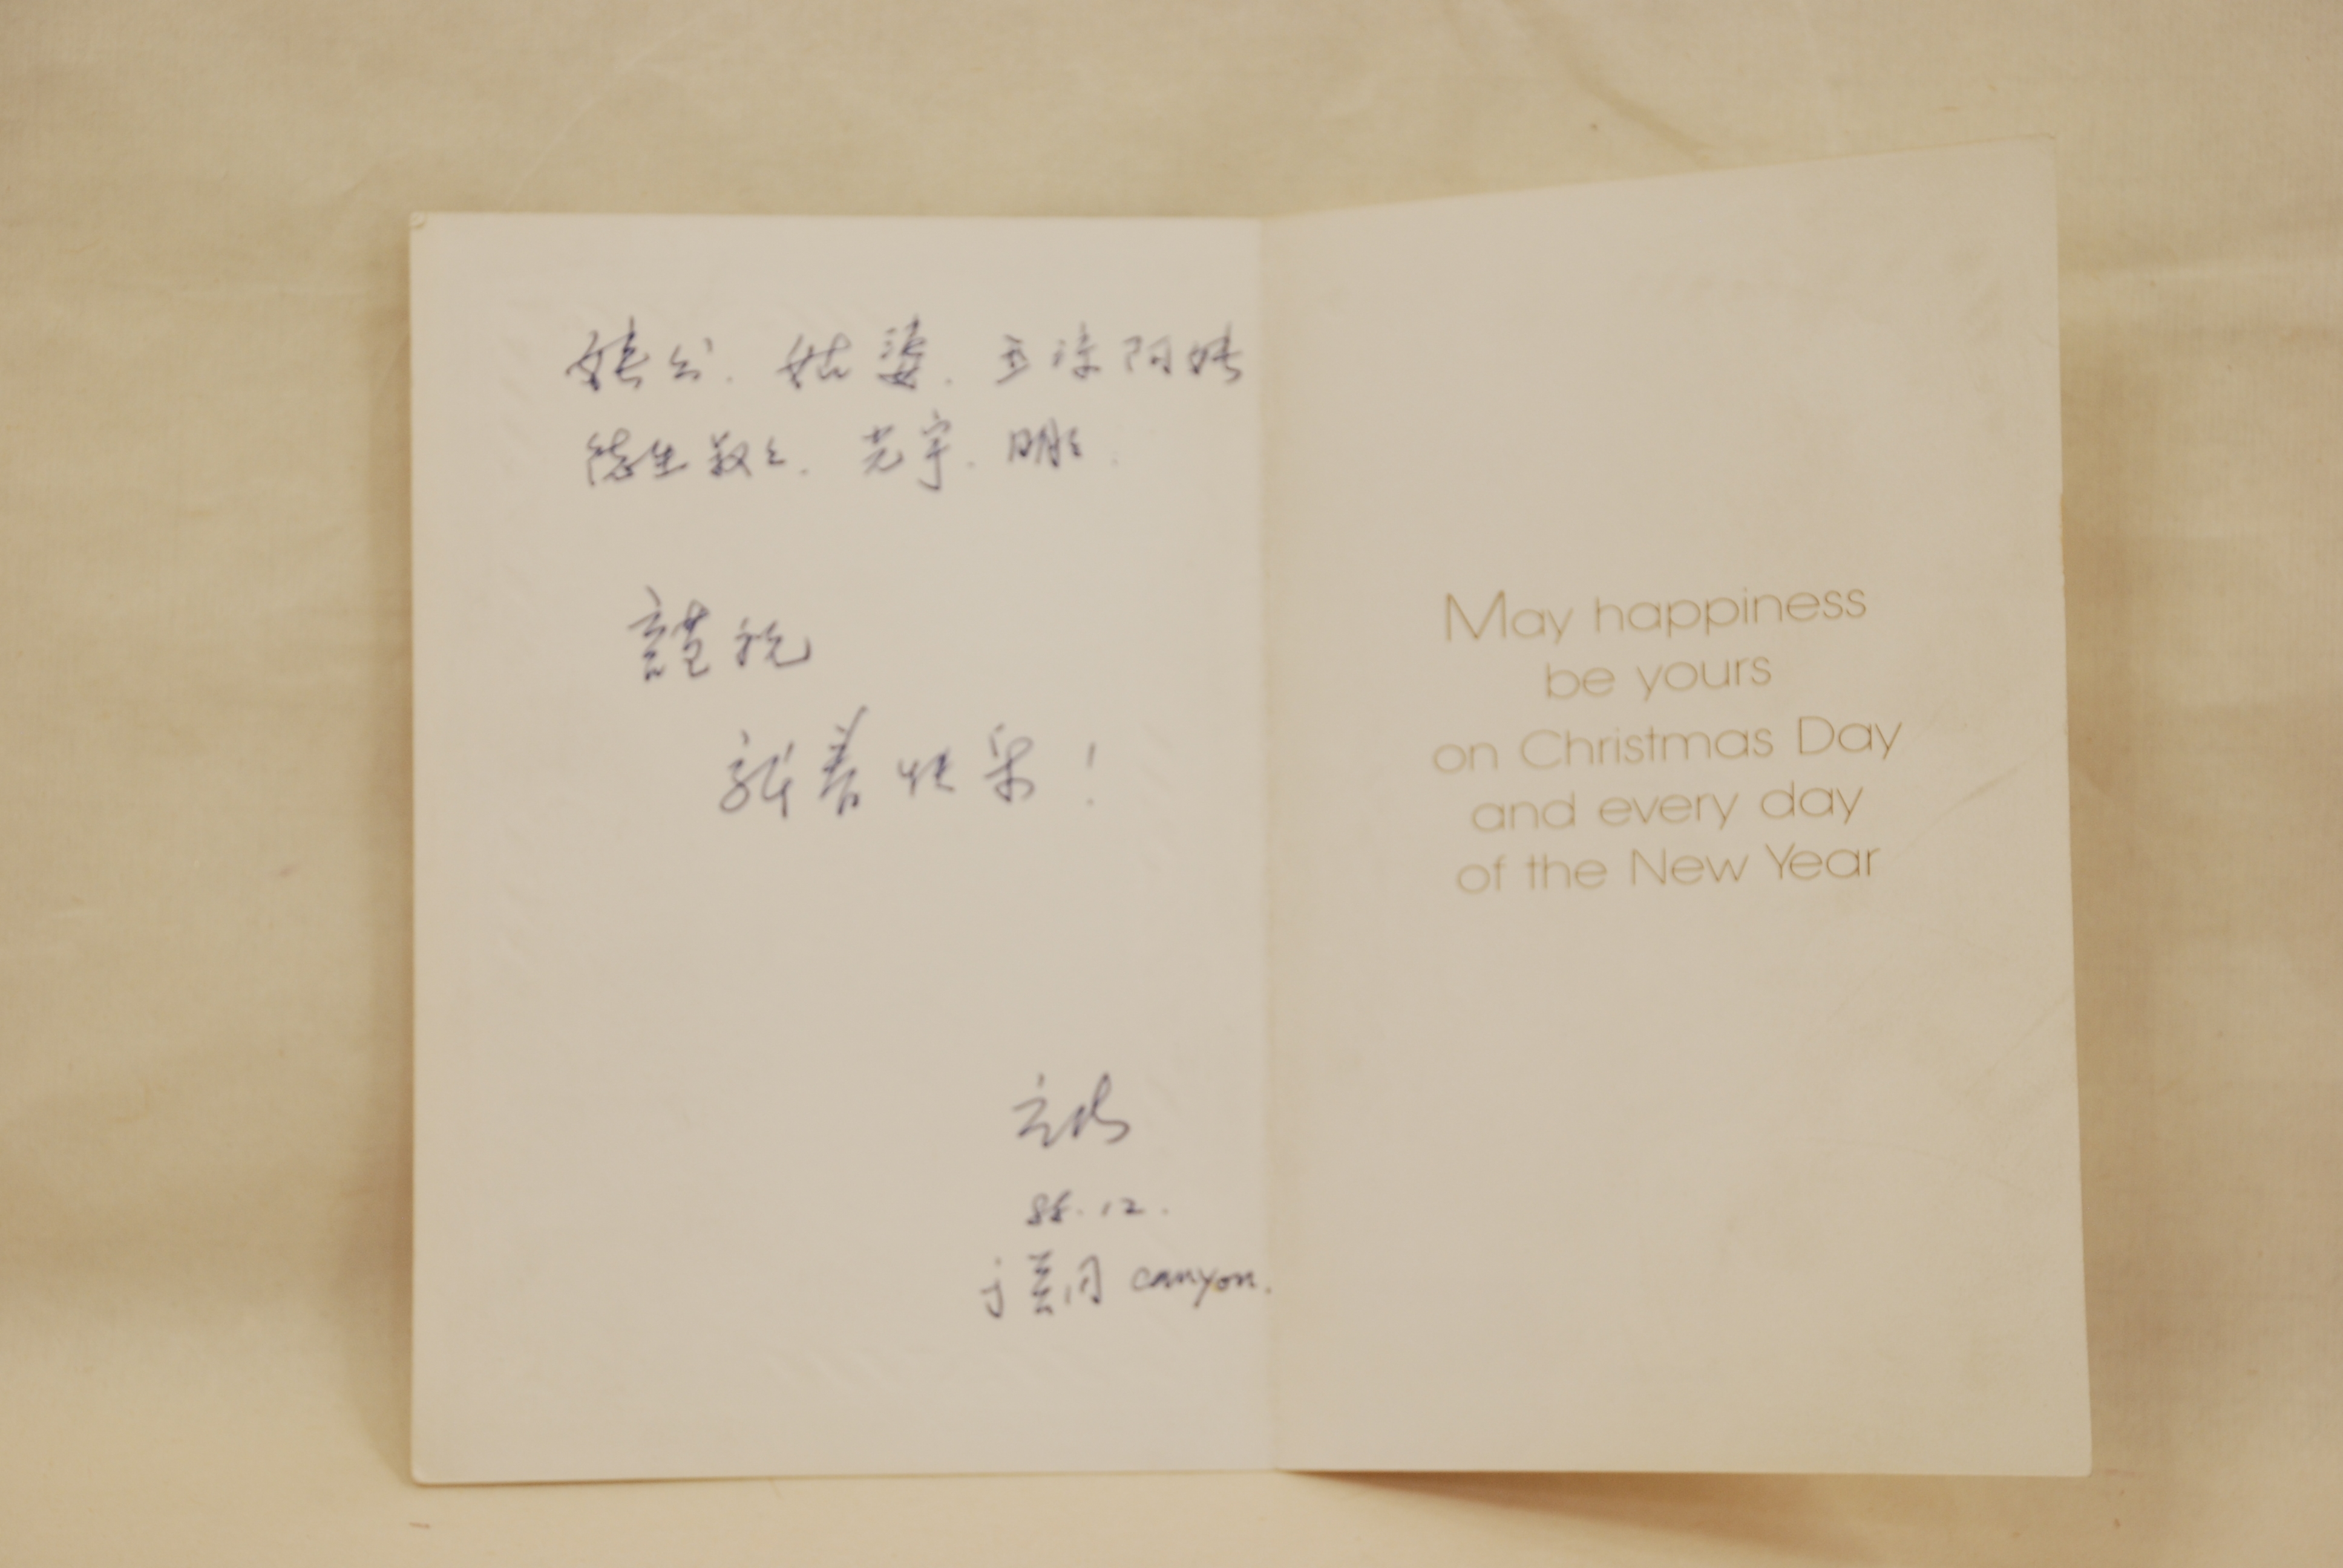 姨公. 姑婆. 玉凉阿姨
德生叔々. 光宇. 明彤.
謹祝
新春快乐!
立波
88.12.
于美月 canyon.
May happiness
be yours
on Christmas Day
and every day
of the New Year